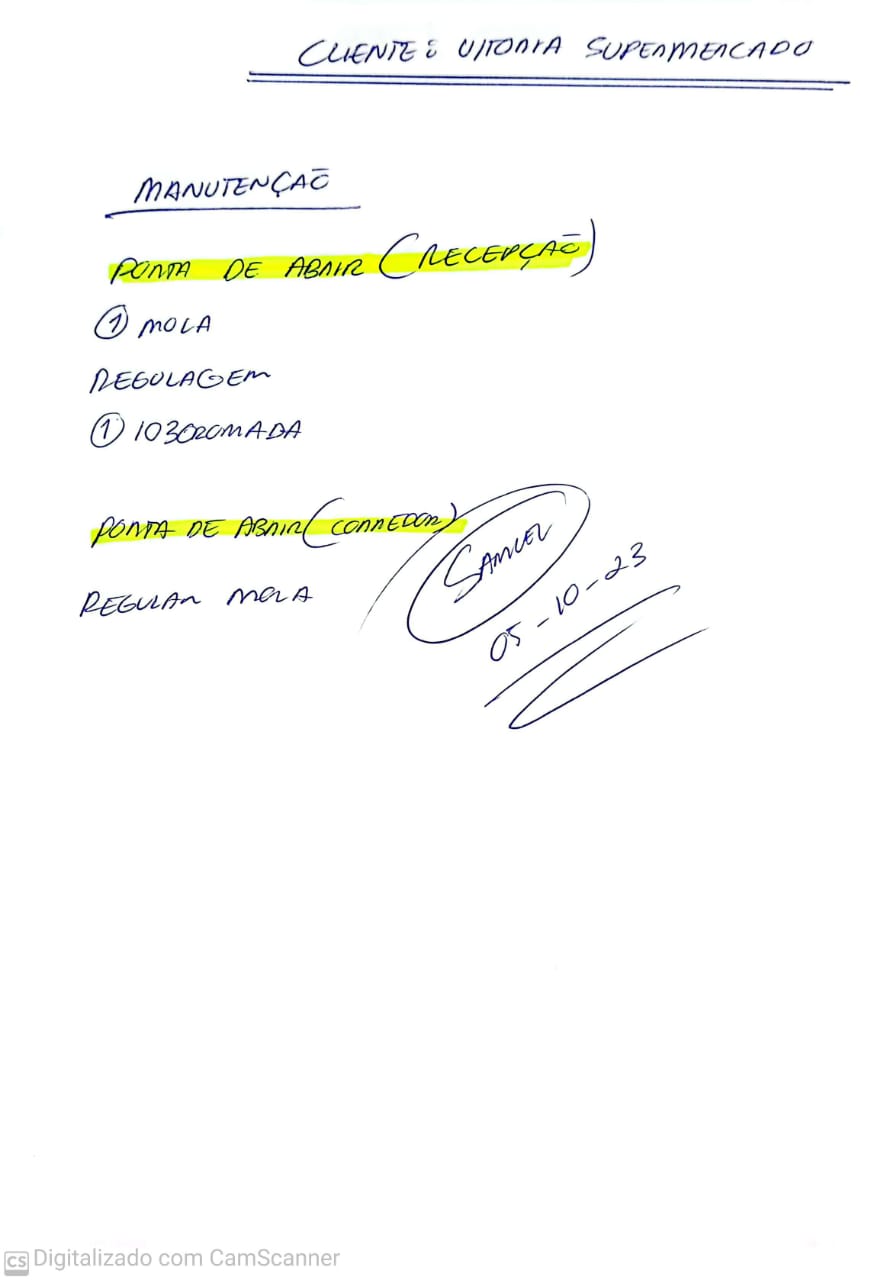 CLIENTE: VITORIA SUPERMERCADO
MANUTENÇÃO
PORTA DE ABRIR (RECEPÇÃO)
① MOLA
REGULAGEM
① 103CROMADA
PORTA DE ABRIR (CORREDOR)
REGULAR MOLA
SAMUEL
05-10-23
CS Digitalizado com CamScanner